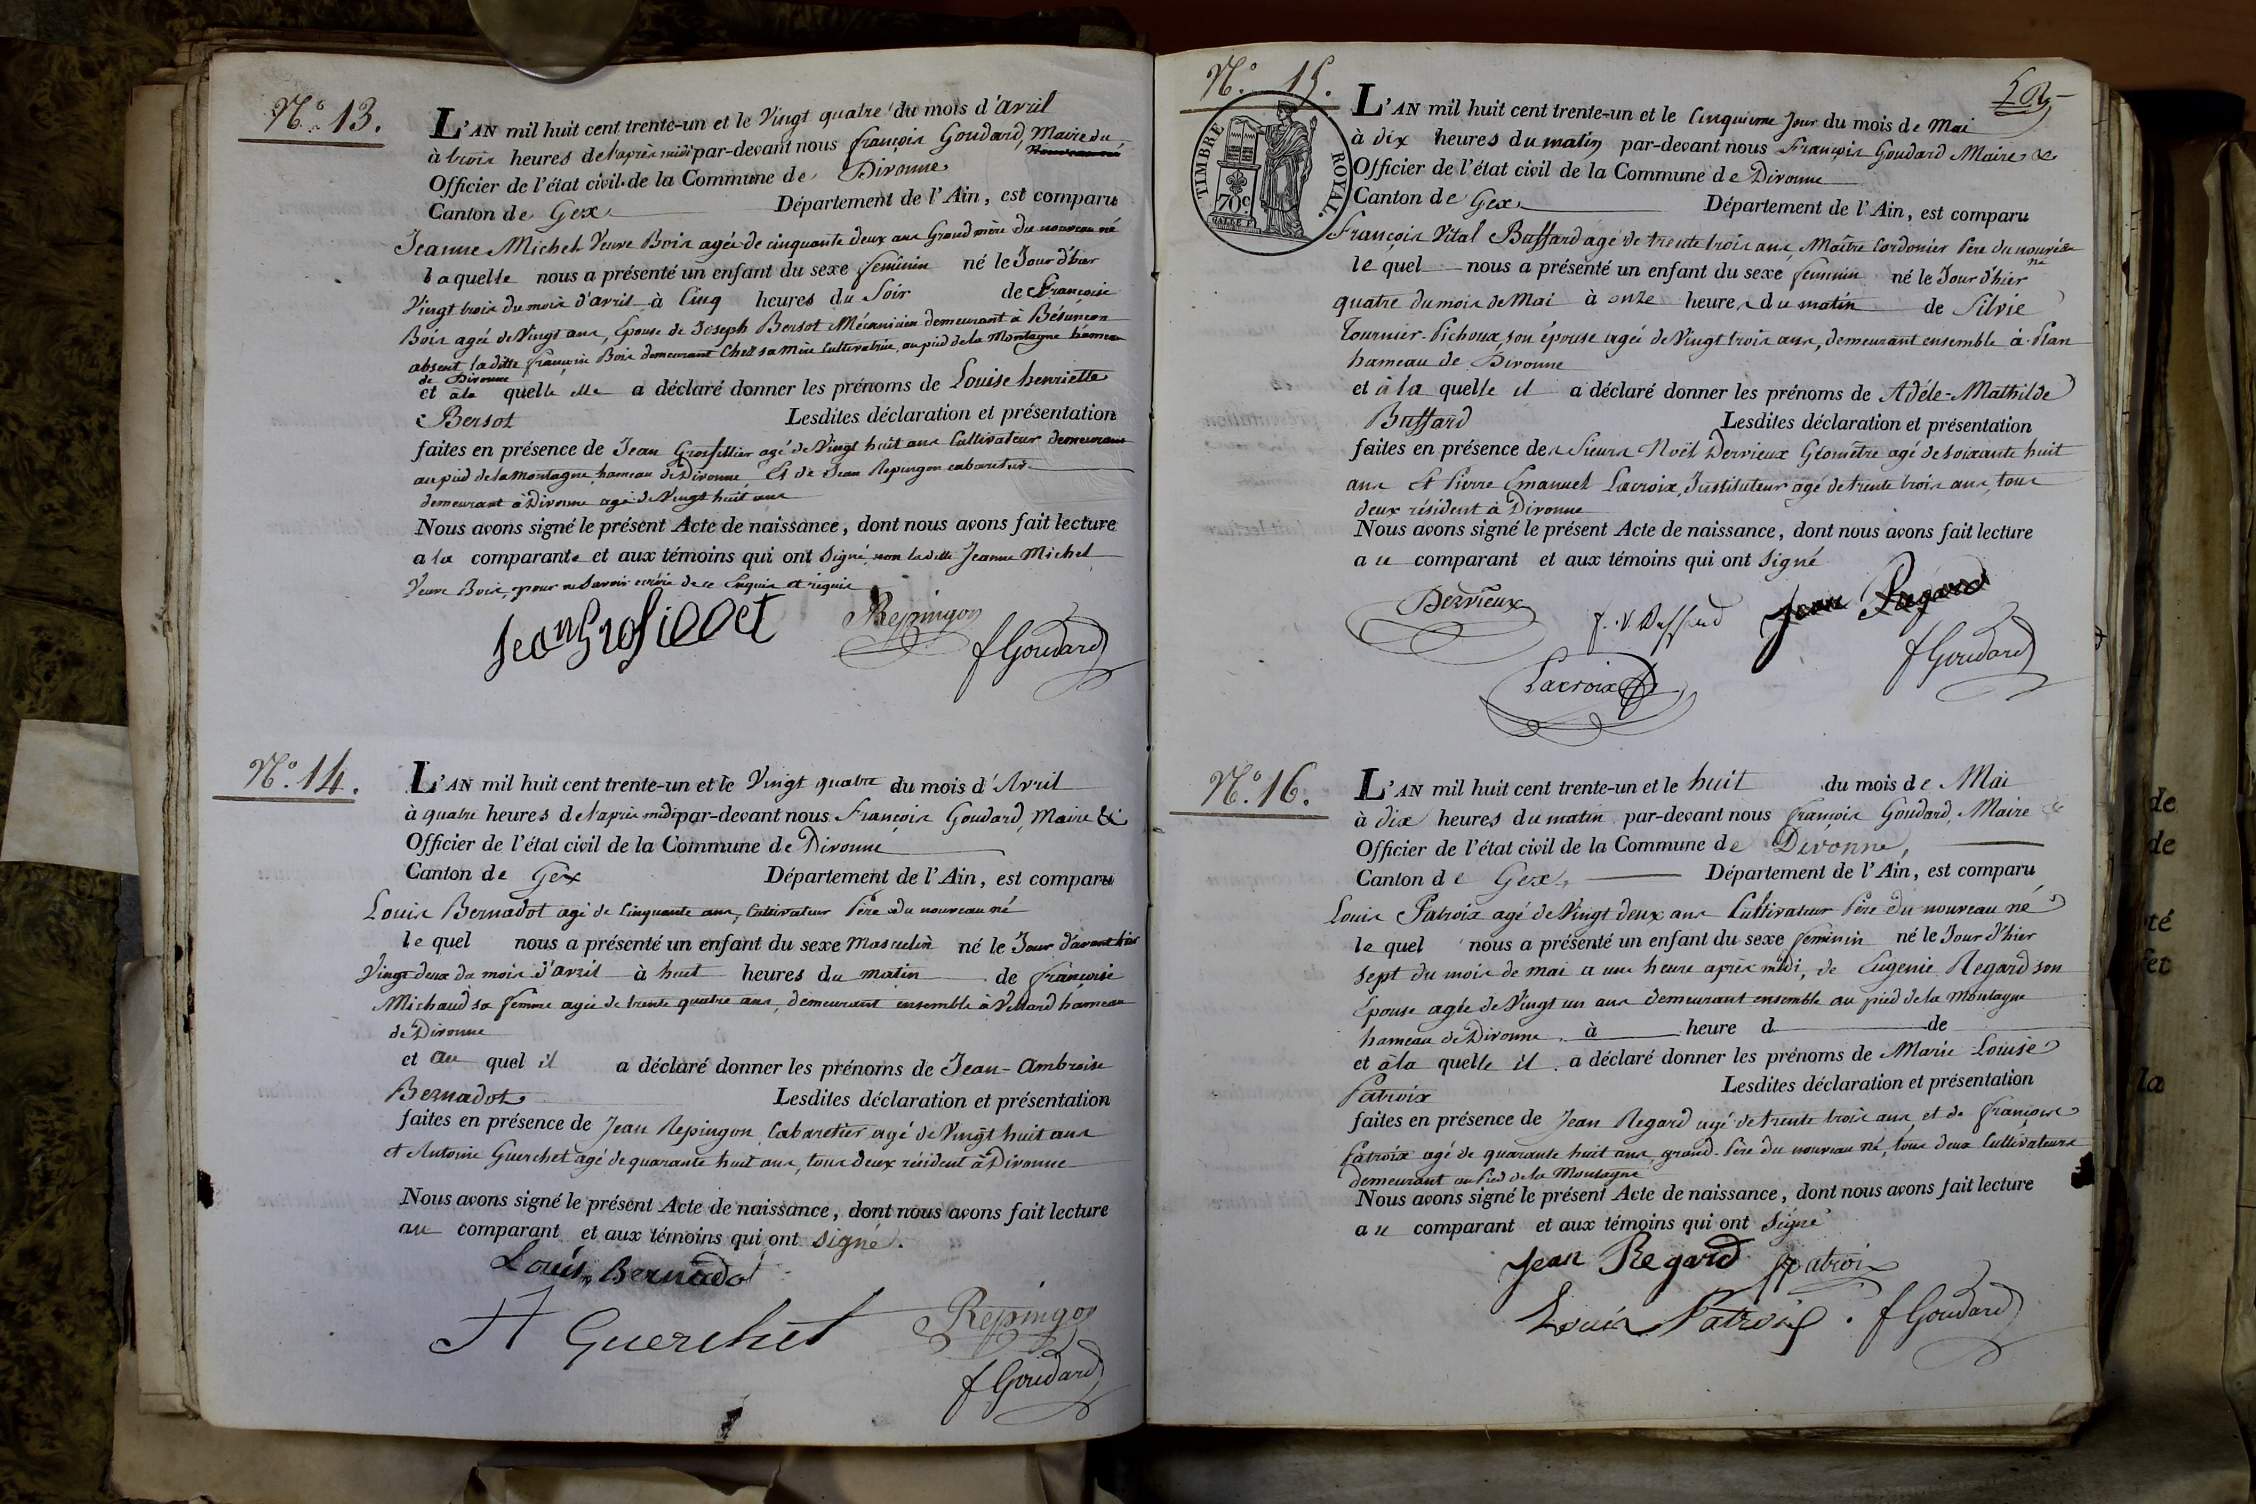 N.° 13.
L'AN mil huit cent trente-un et le Vingt quatre du mois d'avril
à trois heures de l'après midi par-devant nous françois Goudard, Maire du
Officier de l'état civil de la Commune de Divonne
Canton de Gex Département de l'Ain, est comparu
Jeanne Michel Veuve Bois agée de cinquante deux ans Grand mère du nouveau né
laquelle nous a présenté un enfant du sexe feminin né le Jour d'hier
Vingt trois du mois d'avril à Cinq heures du Soir de françoise
Bois agée de Vingt ans, Epouse de Joseph Bersot Mécanicien demeurant à Bésançon
absent la ditte françoise Bois demeurant Chez sa mère Cultivatrice, au pied de la Montagne hameau
de Divonne
et à la quelle elle a déclaré donner les prénoms de Louise henriette
Bersot Lesdites déclaration et présentation
faites en présence de Jean Grosfillier agé de Vingt huit ans Cultivateur demeurant
au pied de la Montagne, hameau de Divonne Et de Jean Repingon cabaretier
demeurant à Divonne agé de Vingt huit ans
Nous avons signé le présent Acte de naissance, dont nous avons fait lecture
a la comparante et aux témoins qui ont signé, non la ditte Jeanne Michel
Veuve Bois, pour ne Savoir ecrire de ce Enquis et requis
Repingon
f Goudard
N.° 14.
L'AN mil huit cent trente-un et le Vingt quatre du mois d'Avril
à quatre heures de l'après midi par-devant nous François Goudard, Maire &
Officier de l'état civil de la Commune de Divonne
Canton de Gex Département de l'Ain, est comparu
Louis Bernadot agé de Cinquante ans, Cultivateur Père du nouveau né
le quel nous a présenté un enfant du sexe Masculin né le Jour d'avant hier
Vingt deux du mois d'avril à huit heures du matin de françoise
Michaud sa femme agée de trente quatre ans, demeurant ensemble à Villard hameau
de Divonne
et au quel il a déclaré donner les prénoms de Jean-Ambroise
Bernadot Lesdites déclaration et présentation
faites en présence de Jean Repingon Cabaretier agé de Vingt huit ans
et Antoine Guerchet agé de quarante huit ans, tous deux résident à Divonne
Nous avons signé le présent Acte de naissance, dont nous avons fait lecture
au comparant et aux témoins qui ont signé.
Louis Bernadot
A Guerchet Repingon
f Goudard
N.° 15.
TIMBRE ROYAL.
70c
L'AN mil huit cent trente-un et le Cinquieme Jour du mois de Mai
à dix heures du matin par-devant nous François Goudard Maire &
Officier de l'état civil de la Commune de Divonne
Canton de Gex Département de l'Ain, est comparu
François Vital Buffard agé de trente trois ans, Maître Cordonier Père du nouveau
né
le quel nous a présenté un enfant du sexe feminin né le Jour d'hier
quatre du mois de Mai à onze heures du matin de Silvie
Tournier-Pichoux, son épouse agée de Vingt trois ans, demeurant ensemble à Plan
hameau de Divonne
et à la quelle il a déclaré donner les prénoms de Adéle-Mathilde
Buffard Lesdites déclaration et présentation
faites en présence des Sieurs Noël Dervieux Géomètre agé de soixante huit
ans Et Pierre Emanuel Lacroix, Instituteur agé de trente trois ans, tous
deux résident à Divonne
Nous avons signé le présent Acte de naissance, dont nous avons fait lecture
au comparant et aux témoins qui ont Signé
Dervieux f. V Buffard Jean Regard
f Goudard
Lacroix
N.° 16.
L'AN mil huit cent trente-un et le huit du mois de Mai
à dix heures du matin par-devant nous françois Goudard, Maire &
Officier de l'état civil de la Commune de Divonne,
Canton de Gex, Département de l'Ain, est comparu
Louis Patroix agé de Vingt deux ans Cultivateur Père du nouveau né
le quel nous a présenté un enfant du sexe feminin né le Jour d'hier
sept du mois de mai a une heure après midi, de Eugenie Regard son
Epouse agée de Vingt un ans demeurant ensemble au pied de la montagne
hameau de Divonne à heure d de
et à la quelle il a déclaré donner les prénoms de Marie Louise
Patroix Lesdites déclaration et présentation
faites en présence de Jean Regard agé de trente trois ans, et de françois
Patroix agé de quarante huit ans, grand-Père du nouveau né, tous deux Cultivateurs
demeurant au Pied de la Montagne
Nous avons signé le présent Acte de naissance, dont nous avons fait lecture
au comparant et aux témoins qui ont Signé
Jean Regard patroix
Louis Patroix. f Goudard